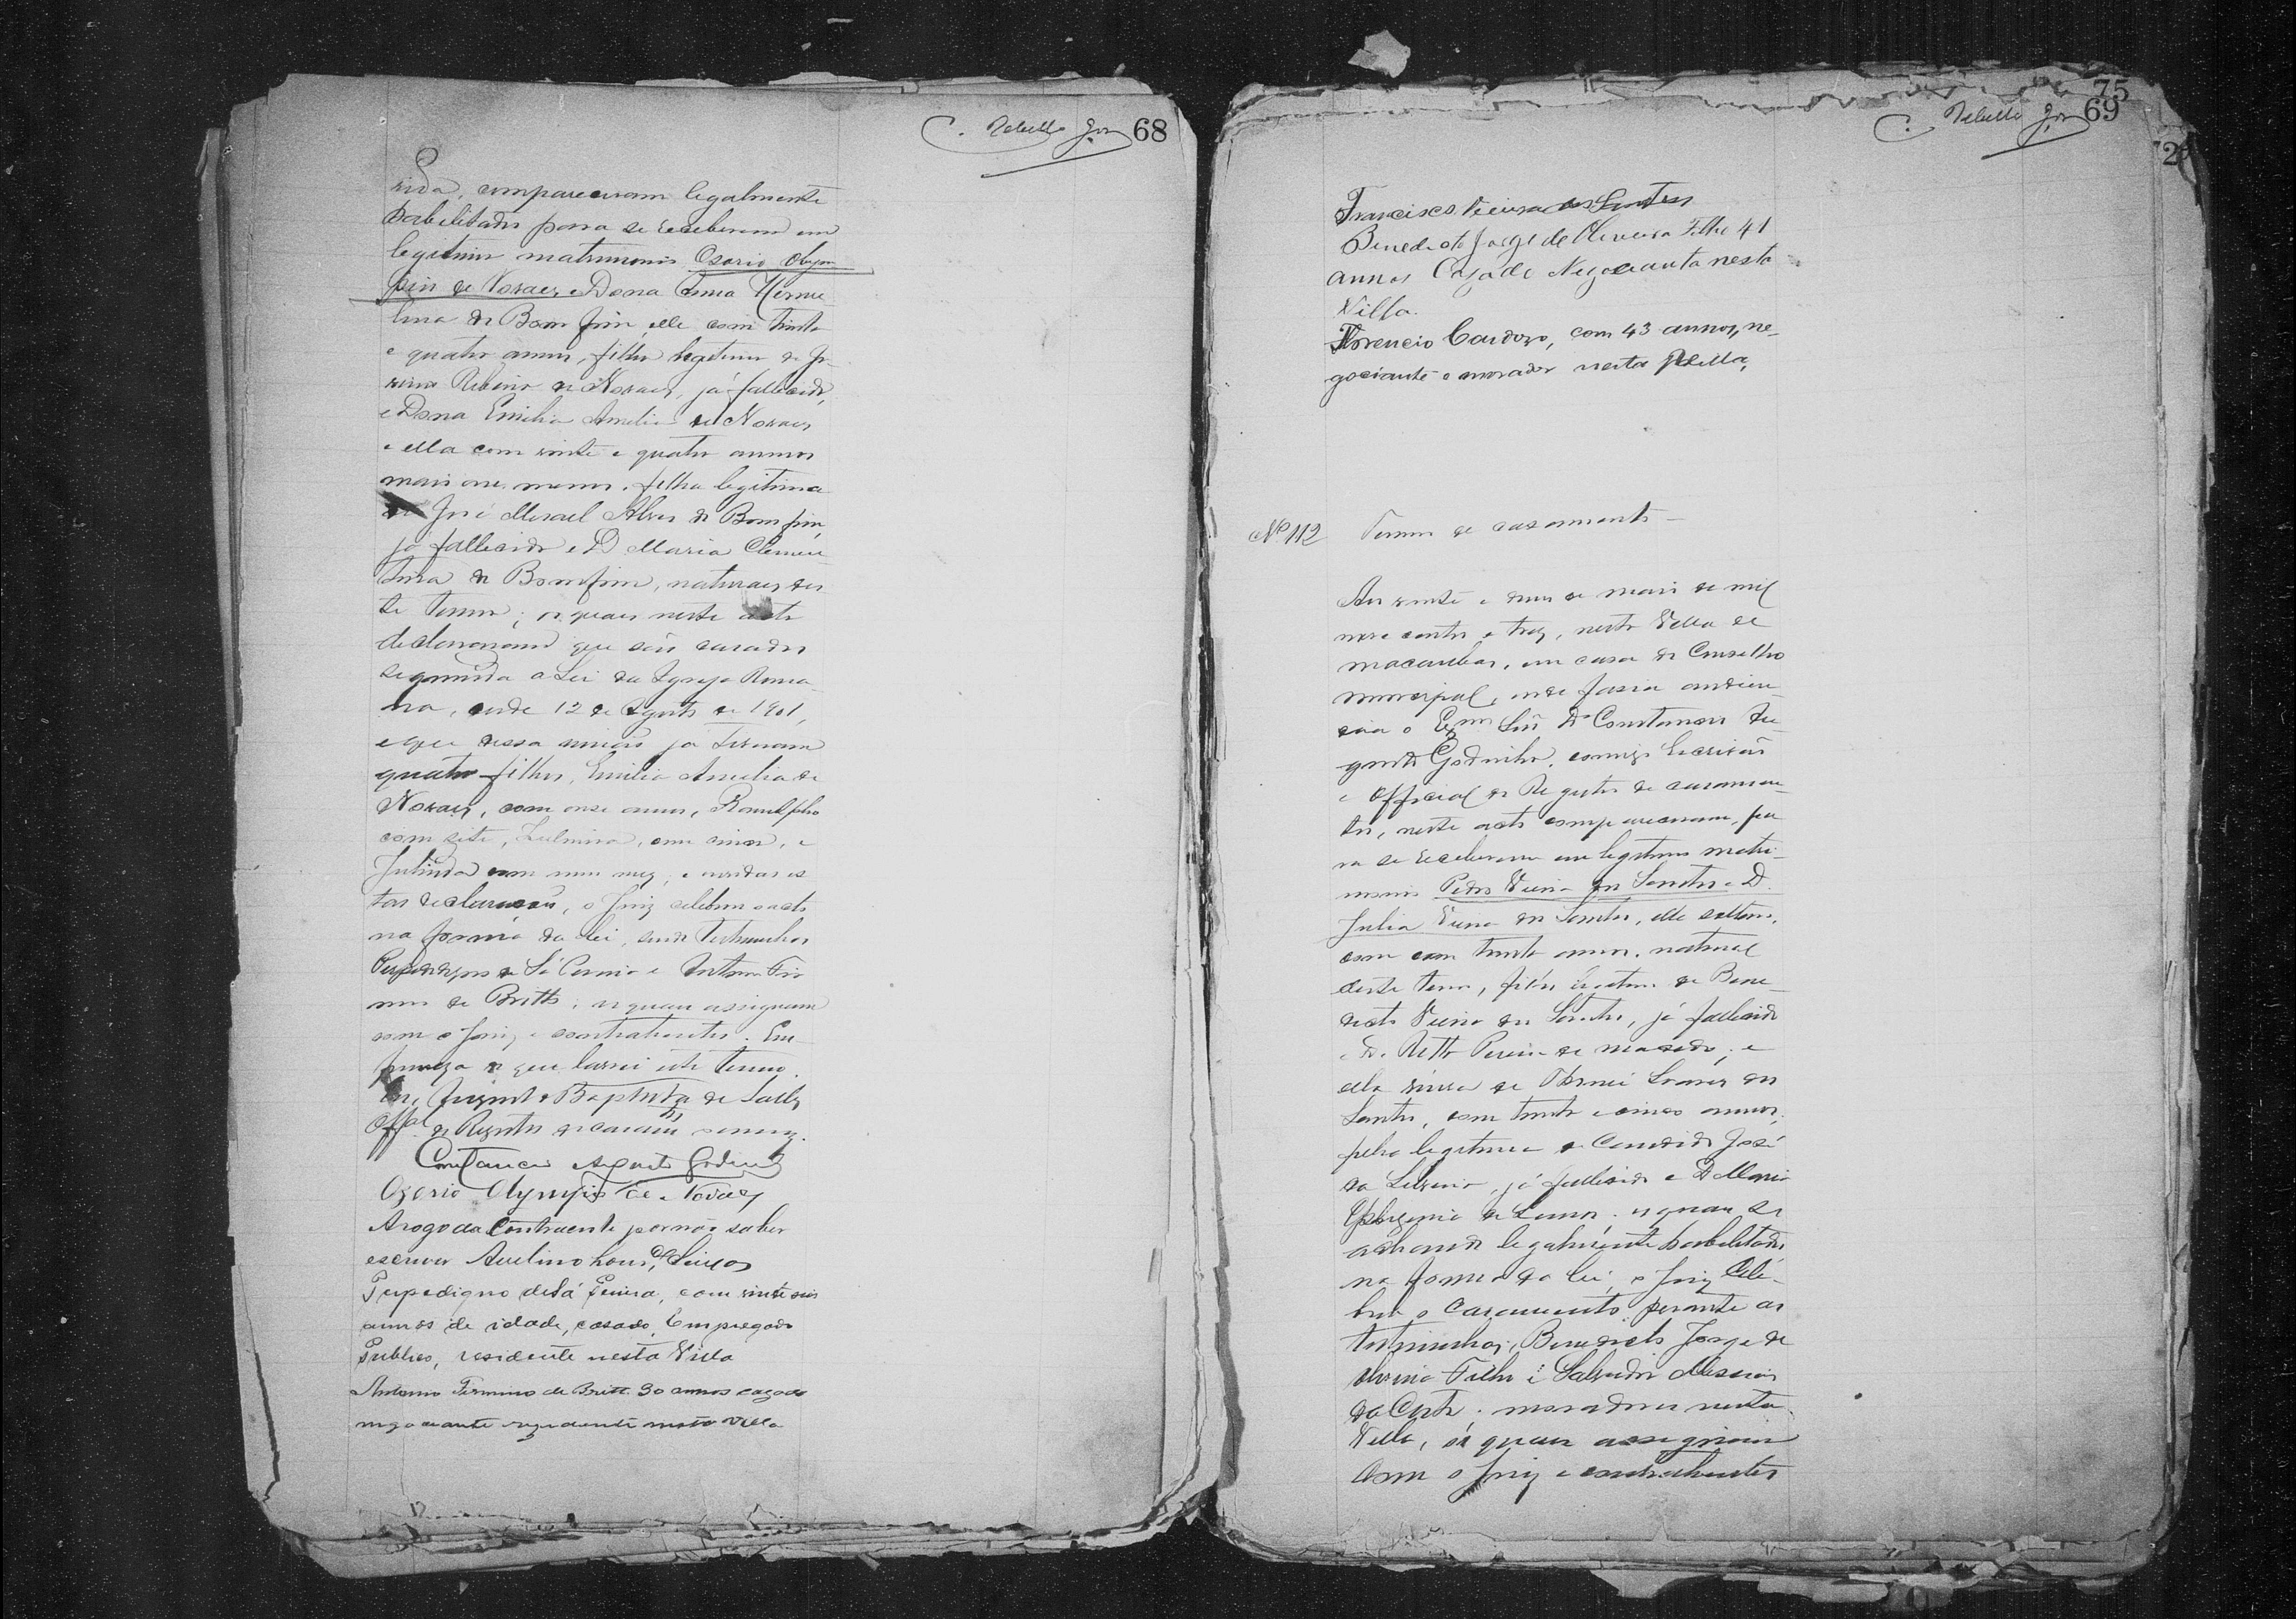 C. Rebello Jor 68
rida, compareceram legalmente
habilitados para se receberem em
legitimo matrimonio Osorio Olym
pio de Novaes e Dona Anna Herme
lina do Bom fim, elle com trinta
e quatro annos, filho legitimo de
Ribeiro de Novaes, já fallecido,
e Dona Emilia Amelia de Novaes
e ella com vinte e quatro annos
mais ou menos, filha legitima
de José Misael Alves do Bom fim,
já fallecido e D Maria Clemen
tina do Bomfim, naturaes des
te termo; os quaes neste acto
declararam que são casados
segundo a Lei da Igreja Roma
na, desde 12 de Agosto de 1901,
e que dessa união já tiveram
quatro filhos, Emilia Amelia de
Novaes, com onse annos, Ranulpho
com sete, Zulmira, com cinco, e
Julinda com um mez; e ouvidas es
tas declarações, o Juiz celebrou o acto
na forma da lei, sendo testemunhas
Pupedigno de Sá Pereira e Antonio Fir
mino de Britto; os quaes assignam
com o Juiz e contrahentes. Em
firmeza do que lavrei este termo.
Eu, Baptista de
Offal do Registro de casam
Constancio Augusto Godinho
Ozorio Olympio de Novaes
Arogo da Contraente por não saber
escrever Avelino
Pupedigno de Sá Pereira, com vinte seis
annos de idade, casado, Empregado
Publico, residente nesta Villa
Antonio Firmino de Britto 30 annos cazado
negociante rezidente nesta Villa
75
C. Rebello Jor 69
72
Francisco Vieira dos Santos
Benedicto Jorge de Oliveira Filho 41
annos Cazado Negociante nesta
Villa.
Florencio Cardozo, com 43 annos, ne-
gociante e morador nesta Villa,
No 112 Termo de casamento –
Aos vinte e de maio de mil
nove centos e trez, nesta Villa de
Macaubas, em casa do Conselho
municipal, onde fasia audien
cia o Exmo Snr Dr Constancio Au
gusto Godinho, comigo Escrivão
e Official do Registro de casamen
tos, neste acto compareceram, pa
ra se receberem em legitimo matri
monio Pedro Vieira dos Santos e D.
Julia Vieira dos Santos, elle solteiro,
com trinta annos, natural
deste termo, filho legitimo de Bene
dicto Vieira dos Santos, já fallecido
e D. Ritta Pereira de Macedo; e
ella viuva de Soares dos
Santos, com trinta e cinco annos,
filha legitima de Candido José
da, já fallecido e D Maria
Ephigenia de; os quaes se
achando legalmente habilitados
na forma da lei, o Juiz cele-
brou o casamento perante as
testemunhas, Benedicto Jorge de
Oliveira Filho e Salvador Messias
da Costa, moradores nesta
Villa, os quaes assignam
com o Juiz e contrahentes